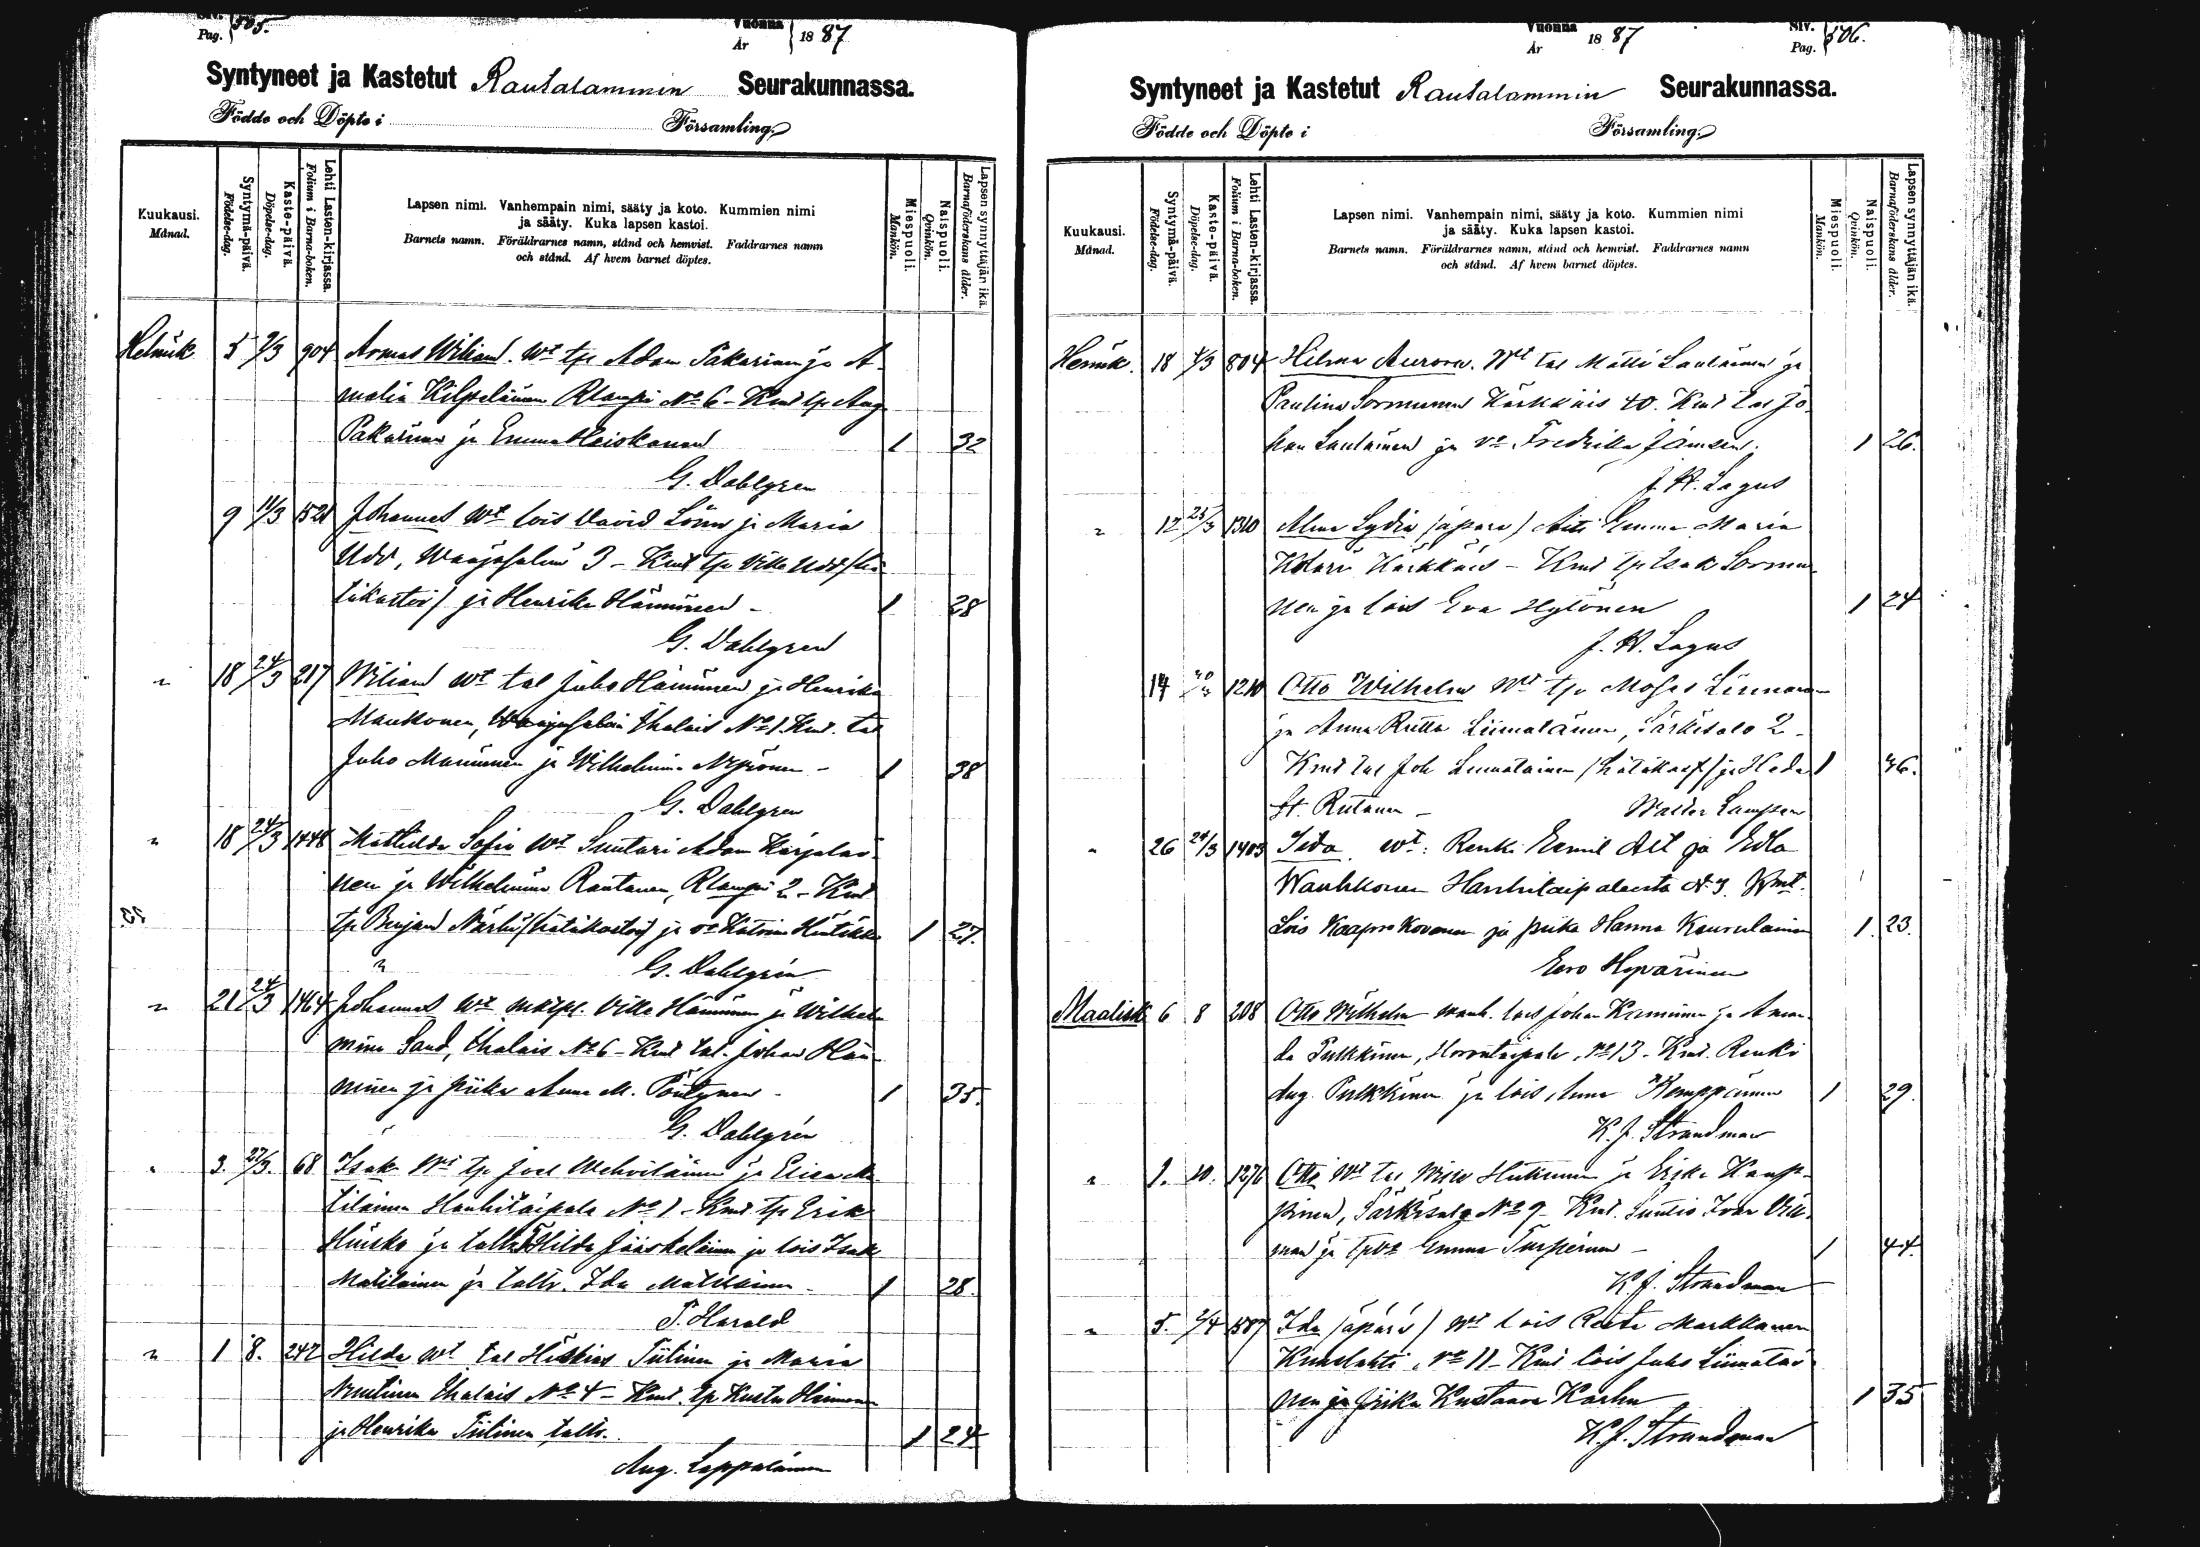 Siv.
Pag. 505.
Vuonna
År 1887
Syntyneet ja Kastetut Rautalammin Seurakunnassa.
Födde och Döpte i Församling.
Kuukausi.
Månad.
Syntymä-päivä.
Födelse-dag.
Kaste-päivä.
Döpelse-dag.
Lehti Lasten-kirjassa.
Folium i Barna-boken.
Lapsen nimi. Vanhempain nimi, sääty ja koto. Kummien nimi
ja sääty. Kuka lapsen kastoi.
Barnets namn. Föräldrarnes namn, stånd och hemvist. Faddrarnes namn
och stånd. Af hvem barnet döptes.
Miespuoli.
Mankön.
Naispuoli.
Qvinkön.
Lapsen synnyttäjän ikä.
Barnaföderskans ålder.
Helmik 5 9/3 904 Armas Wiliam. Wt tp Adam Pakarinen ja A-
malia Kilpeläinen Rlampi No 6 - Kmt tp Aug
Pakarinen ja Emma Heiskanen 1 32
G. Dahlgren
9 11/3 1521 Johannes Wt lois David Lönn ja Maria
Udd, Waajasalmi 3 - Kmt tp Ville Udd (hä
täkastoi) ja Henrika Hänninen - 1 28
G. Dahlgren
" 18 24/3 217 Wiliam Wt tal Juho Hänninen ja Henrika
Mankonen, Waajasalmi Ihalais No 1. Kmt. tal
Juho Manninen ja Wilhelmina - 1 38
G. Dahlgren
" 18 24/3 1448 Mathilda Sofia Wt Suutari Adam Karjalai-
nen ja Wilhelmina Rautanen, Rlampi 2 - Kmt
tp Benjam Närhi (hätäkastoi) ja Hintikka 1 27.
G. Dahlgrén
" 21 24/3 1464 Johannes Wt Ville Hänninen ja Wilhel
mina Sand, Ihalais No 6 - Kmt tal. Johan Hän-
ninen ja piika Anna M. Pöntynen - 1 35.
G. Dahlgrén
" 3. 27/3. 68 Isak Wt tp Joel Wehviläinen ja
Hanhitaipale No 1 - Kmt tp Erik
ja Hilda Jääskeläinen ja lois Isak
Matilainen ja taltr. Ida Matilainen - 1 28.
P. Harald
" 1 8. 242 Hilda Wt tal Hiskias Tiitinen ja Maria
Ihalais No 4 - Kmt. tp Kusta
ja Henrika Tiitinen taltr. 1 24
Aug. Lappalainen
Vuonna
År 1887
Siv.
Pag. 506.
Syntyneet ja Kastetut Rautalammin Seurakunnassa.
Födde och Döpte i Församling.
Kuukausi.
Månad.
Syntymä-päivä.
Födelse-dag.
Kaste-päivä.
Döpelse-dag.
Lehti Lasten-kirjassa.
Folium i Barna-boken.
Lapsen nimi. Vanhempain nimi, sääty ja koto. Kummien nimi
ja sääty. Kuka lapsen kastoi.
Barnets namn. Föräldrarnes namn, stånd och hemvist. Faddrarnes namn
och stånd. Af hvem barnet döptes.
Miespuoli.
Mankön.
Naispuoli.
Qvinkön.
Lapsen synnyttäjän ikä.
Barnaföderskans ålder.
18 4/3 804 Hilma Aurora. Wt tal Matti Laulainen ja
Paulina Sormunen Kärkkäis 40. Kmt tal Jo-
han Laulainen ja vo Fredrika Jämsen. 1 26.
J. W. Lagus
" 12 25/3 1310 Alma Lydia (äpärä) Äiti Emma Maria
Kärkkäis - Kmt tp Isak Sormu
nen ja lois Eva Hytönen 1 24
J. W. Lagus
14 1210 Otto Wilhelm Wt tp Moses
ja Anna Riitta Liimatainen, Särkisalo 2 -
Kmt tal Joh Liimatainen (hätäkast) ja Heda 1 36.
St. Rutanen - Walter
" 26 24/3 1403 Iida. wt: Renki Eemil Alt ja Edla
Wauhkonen Hanhitaipaleesta No 3. Kmt.
Lois Kaapro Kovanen ja piika Hanna Kaurulainen 1 23.
Eero Hyvärinen
Maalisk 6 8 208 Otto Wilhelm vanh. lois Johan Kanninen ja Aman-
da Pulkkinen, No 13 - Kmt. Renki
Aug. Pulkkinen ja lois Anna Kemppainen 1 29.
K. J. Strandman
" 1. 10. 1276 Otto Wt tal ja Erika Kaup-
pinen, Särkisalo No 9 - Kmt. Suntio Ivar
man ja Emma Turpeinen - 1 44.
K. J. Strandman
" 5. 2/4 1587 Ida (äpärä) Wt lois Reeta Markkanen
No 11 - Kmt lois Juho Liimatai-
nen ja piika Kustaava Karhu 1 35
K. J. Strandman